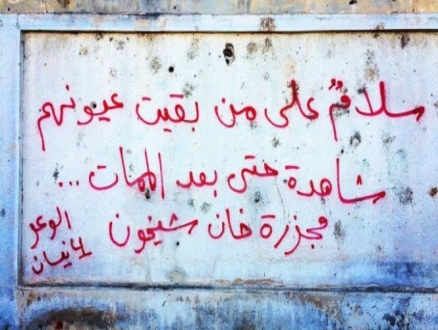 سلامٌ على من بقيت عيونهم
شاهدة حتى بعد الممات...
مجزرة خان شيخون
الوعر
نيسان